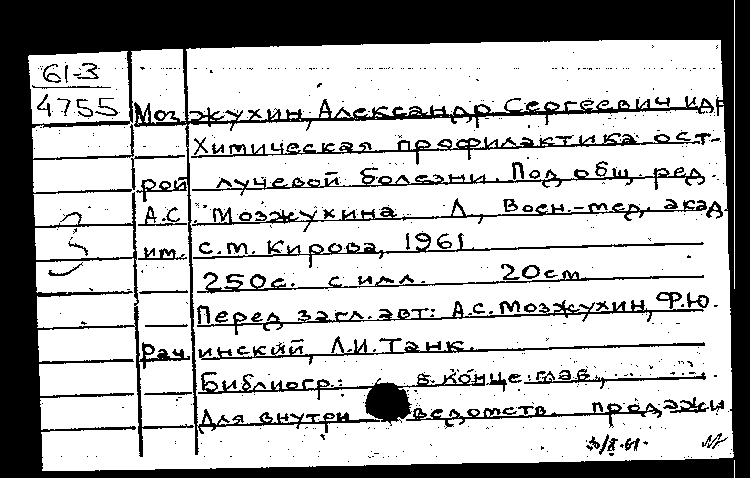 61-3
4755
Мозжухин, Александр Сергеевич и др
Химическая профилактика ост-
рой лучевой болезни. Под общ. ред.
А.С. Мозжухина Л., Воен.-мед. акад.
им. С.М. Кирова, 1961
3
250с. с илл. 20см
Перед загл. авт: А.С. Мозжухин, Ф.Ю.
Рачинский, Л.И. Танк.
Библиогр.: в конце глав.,
Для внутриведомств. продажи